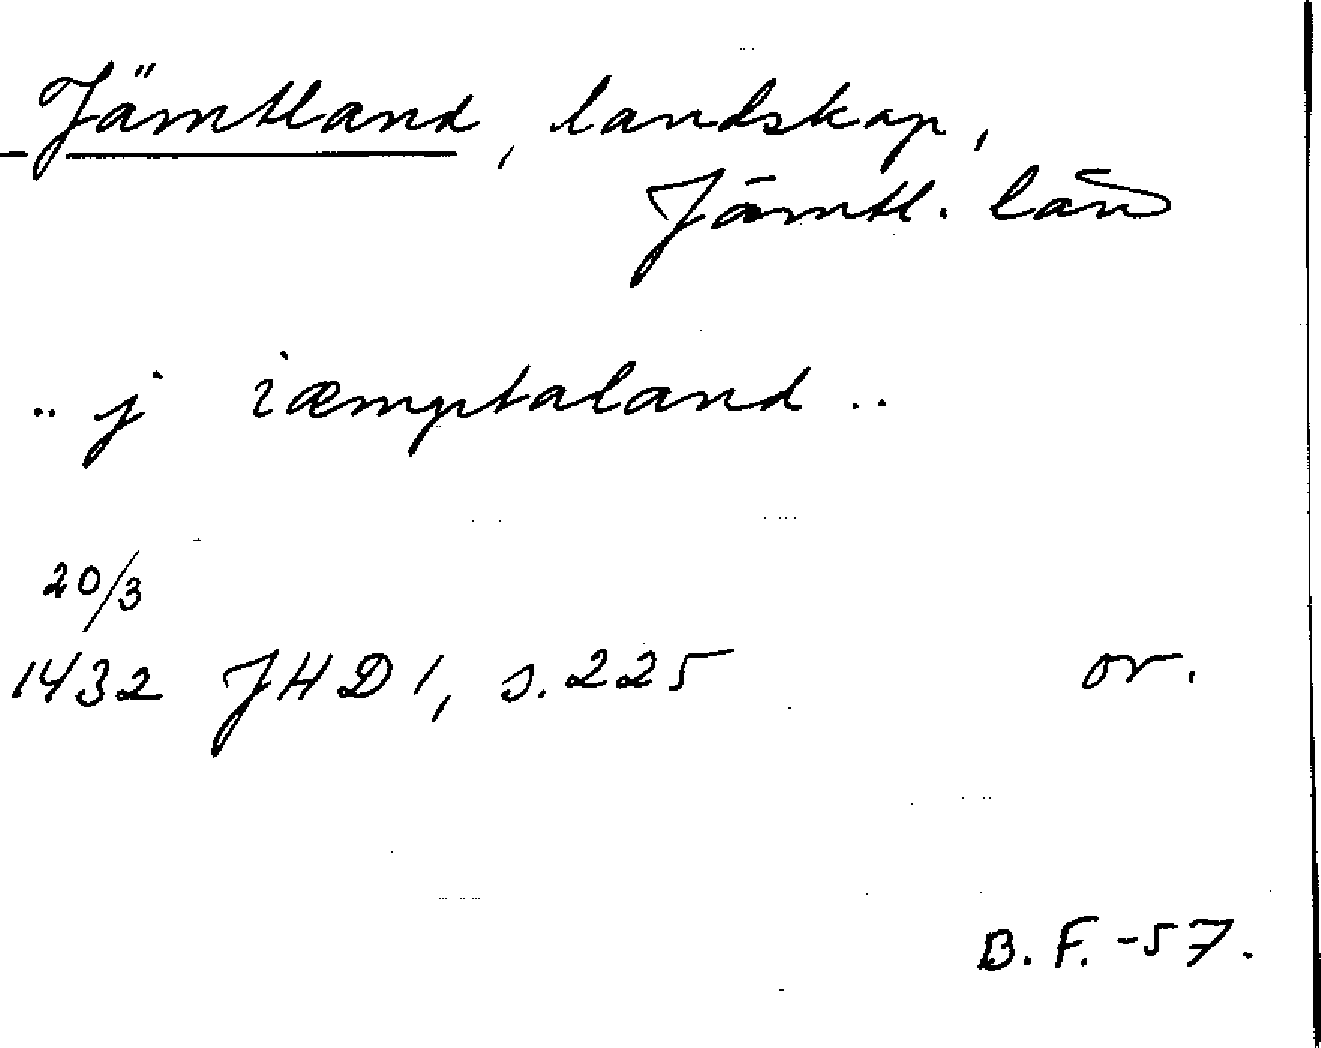 Jämtland, landskap,
Jämtl. län
.. j iæmptaland ..
20/3
1432 JHD 1, s. 225 or.
B. F. -57.